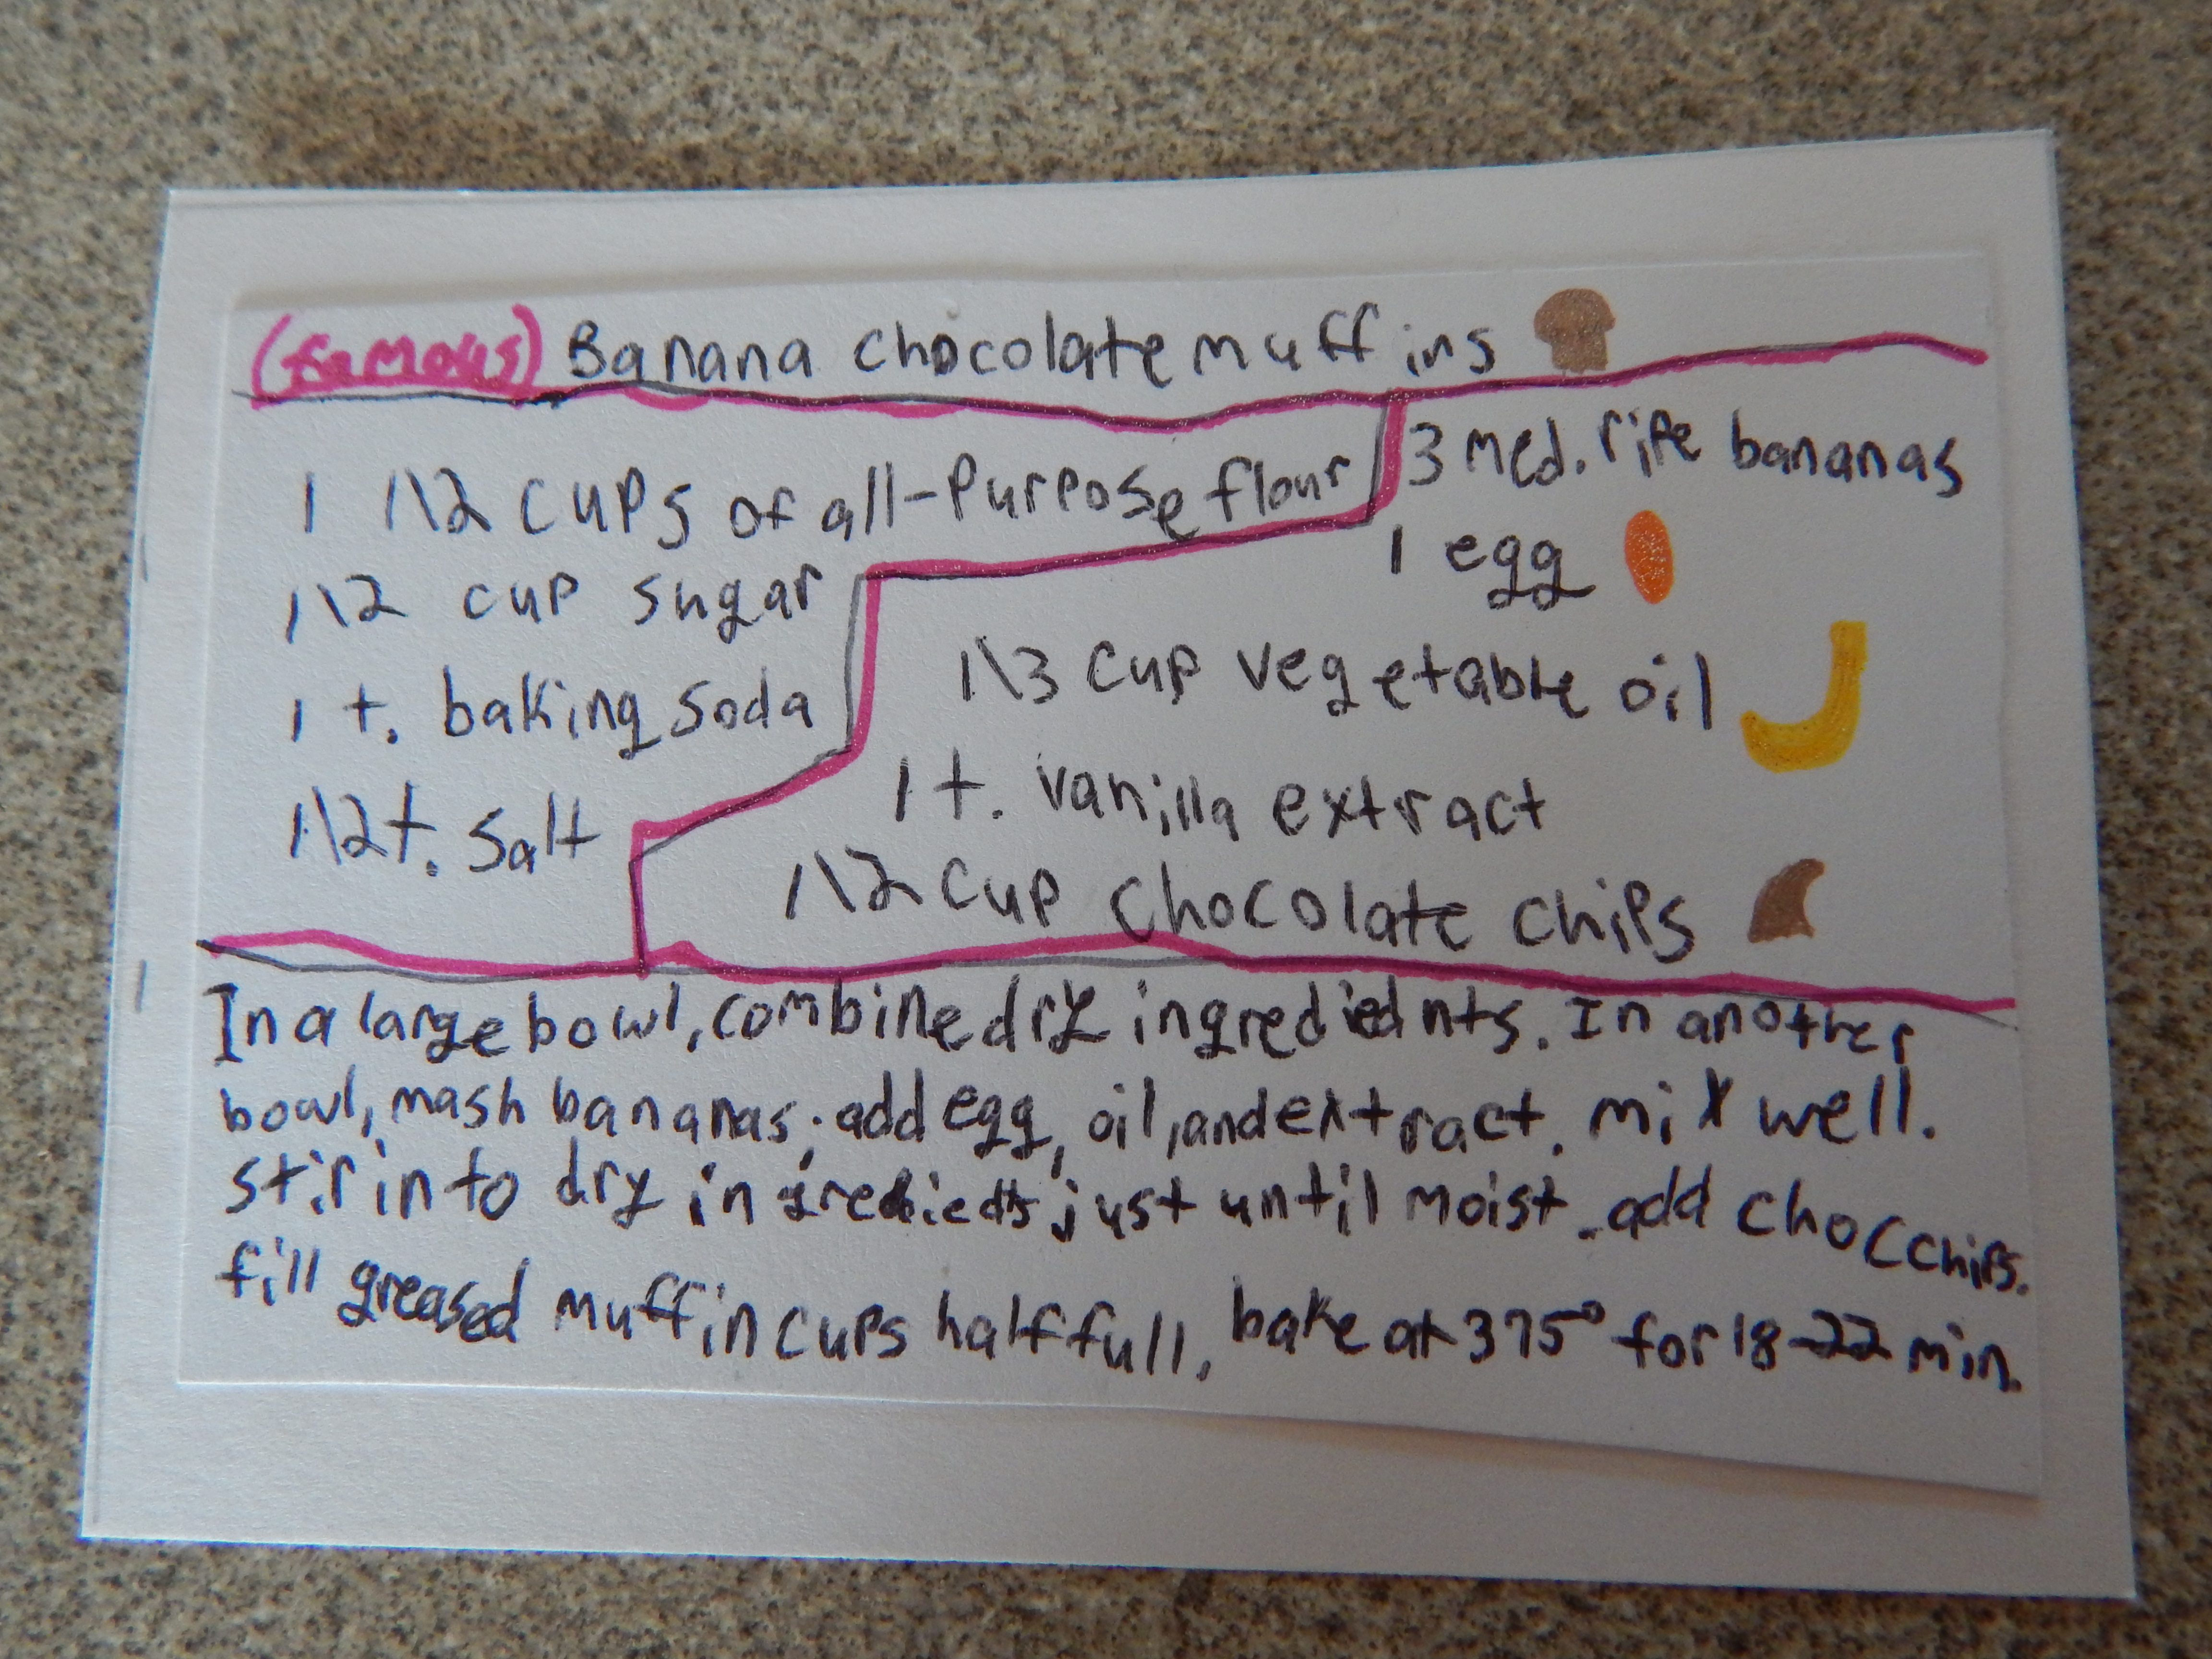 (famous) Banana chocolate muffins
1 1\2 cups of all-Purpose flour
1\2 cup sugar
1 t. baking soda
1\2 t. Salt
3 med. ripe bananas
1 egg
1\3 cup vegetable oil
1 t. vanilla extract
1\2 cup chocolate chips
In a large bowl, combine dry ingrediednts. In another
bowl, mash bananas; add egg, oil, and extract. mix well.
stir into dry ingredients just until moist. add choc chips.
fill greased muffin cups half full, bake at 375° for 18-22 min.